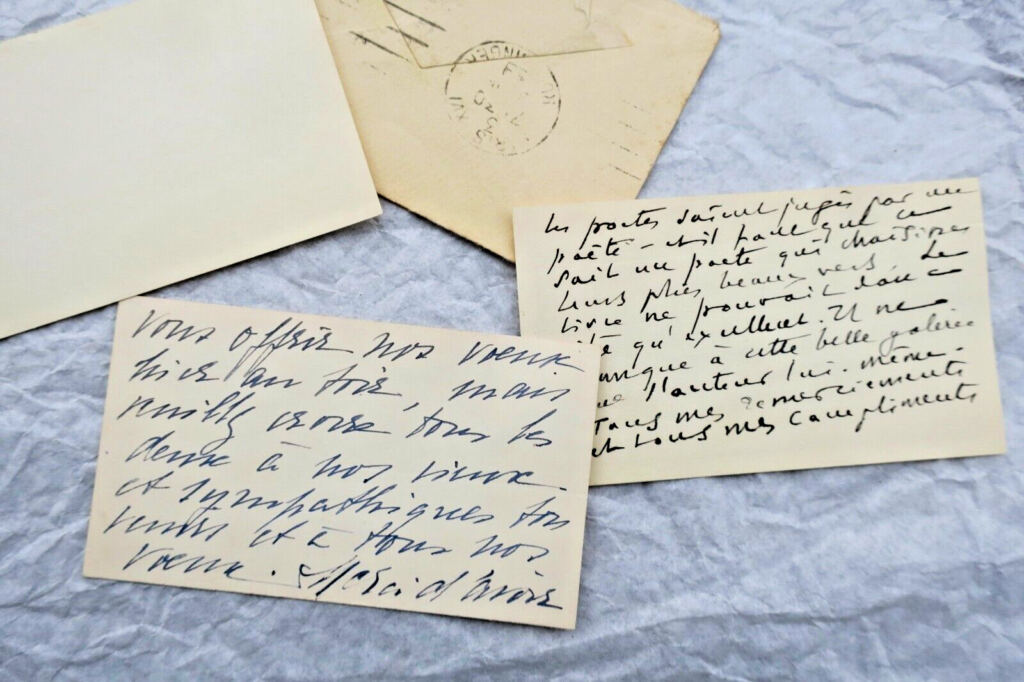 vous offrir nos voeux
hier au soir, mais
veuillez croire tous les
deux à nos vieux
et sympathiques sou
venirs et à tous nos
voeux. Merci d'avoir
Les poètes soient jugés par un
poète - et il faut que ce
soit un poète qui choisisse
leurs plus beaux vers. Le
livre ne pouvait donc
qu'excellent. Il ne
manque à cette belle galerie
que l'auteur lui-même.
Tous mes remerciements
et tous mes compliments